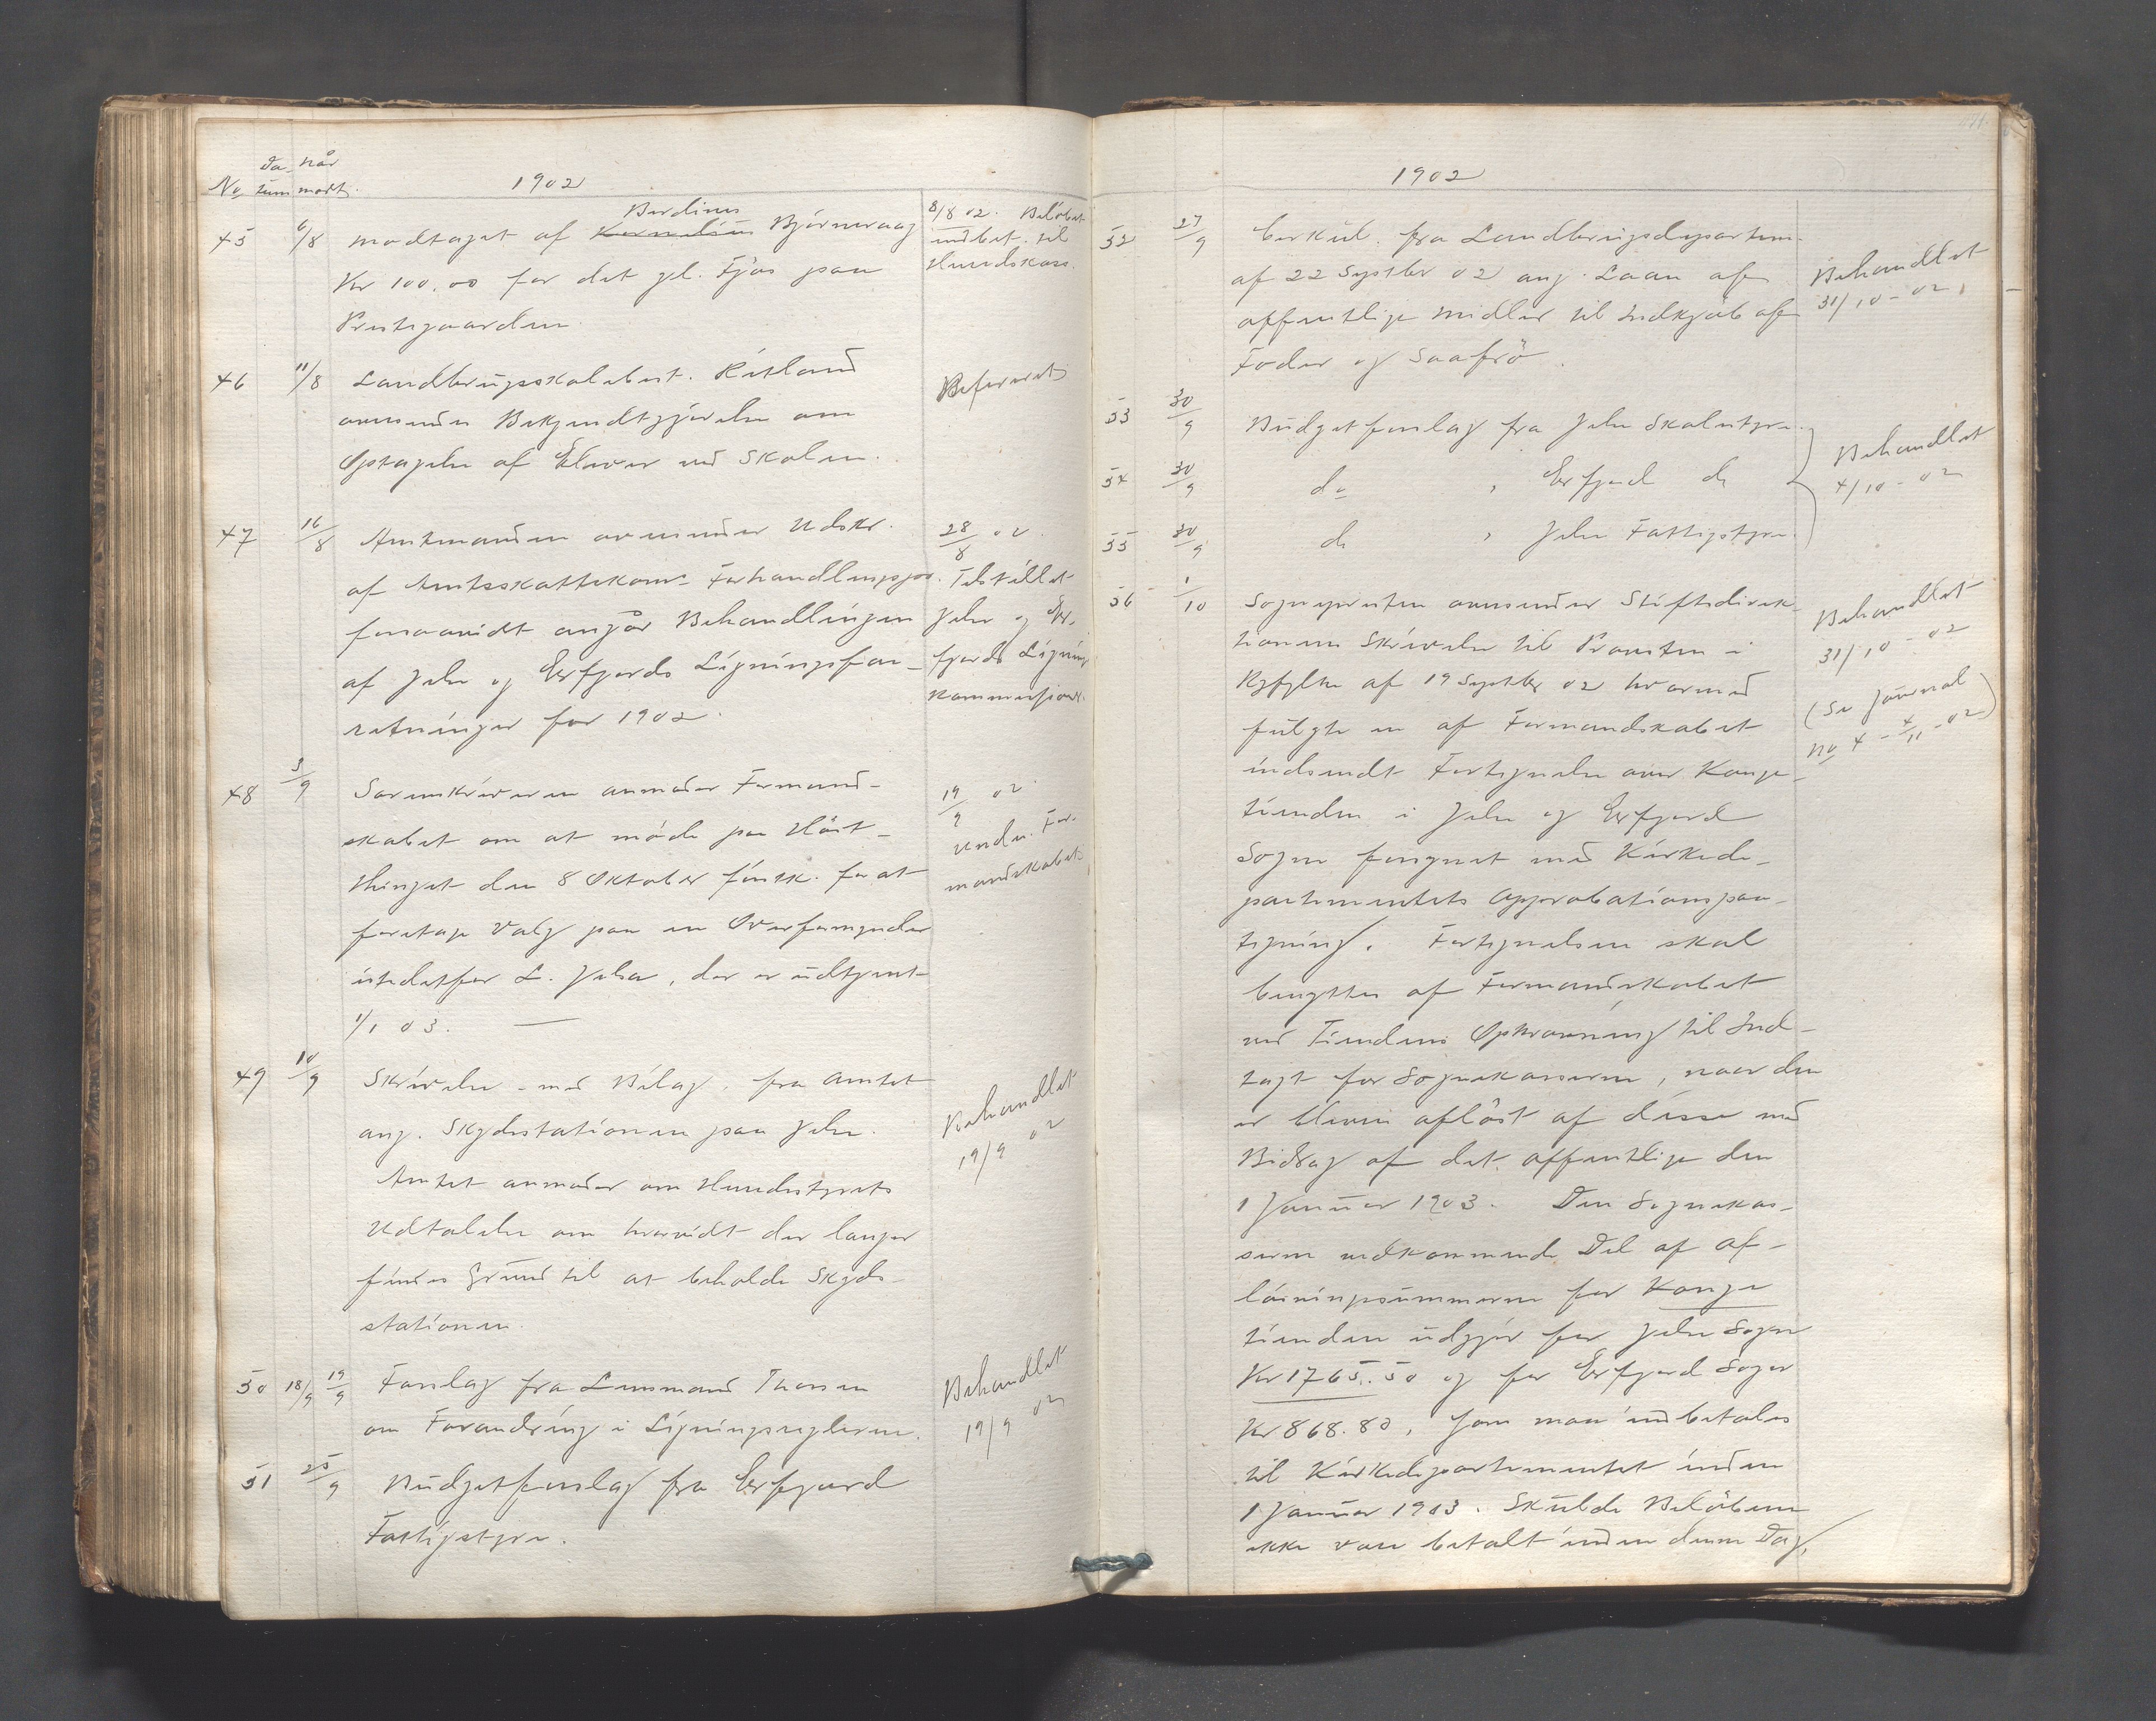 Da- når
No tum modt. 1902
45 6/8 modtaget af Kornelius Berdines Bjørneraag
Kr 100,00 for det gl. Fjøs paa
Prestegaarden.
8/8 02. Beløbet
indbet. til
Herredskass.
46 11/8 Landbrugsskolebest. Retland
anmoder Bekjendtgjørelse om
Optagelse af Elever ved Skolen.
Refereret
47 16/8 Amtmanden oversender Udskr.
af Amtsskattekom- Forhandlingspro.
forsaavidt angår Behandlingen
af Jelse og Erfjords Ligningsfor-
retninger for 1902.
28/8 02.
Tilstillet
Jelse og Er-
fjords Lignings
kommissioner.
48 3/9 Sorenskriveren anmoder Formand-
skabet om at møde paa Høst-
thinget den 8 Oktober førstk. for at
foretage Valg paa en Overformynder
istedetfor L. Jelsa, der er udtjent
1/1 03.
19/9 02
Under. For-
mandskabet
49 10/9 Skrivelse - med Bilag, fra Amtet
ang. Skydsstationen paa Jelse.
Amtet anmoder om Herredsstyrets
Udtalelse om hvorvidt der længer
findes Grund til at beholde Skyds-
stationen.
Behandlet
19/9 02
50 18/9 19/9 Forslag fra Lensmand Thorsen
om Forandring i Ligningsreglerne.
Behandlet
19/9 02
51 25/9 Budgetforslag fra Erfjord
Fattigstyre.
1902
52 27/9 Cirkul. fra Landbrugsdepartem.
af 22 Septbr 02 ang. Laan af
offentlige Midler til Indkjøb af
Foder og Saafrø.
Behandlet
31/10 - 02.
53 30/9 Budgetforslag fra Jelse Skolestyre.
54 30/9 do , Erfjord do
55 30/9 do , Jelse Fattigstyre.
Behandlet
4/10 - 02
56 1/10 Sognepresten oversender Stiftsdirek-
tionens Skrivelse til Provsten i
Ryfylke af 19 Septbr 02 hvormed
fulgte en af Formandskabet
indsendt Fortegnelse over Konge-
tienden i Jelse og Erfjord
Sogne forsynet med Kirkede-
partementets Approbationspaa-
tegning. Fortegnelsen skal
benyttes af Formandskabet
ved Tiendens Opkrævning til Ind-
tægt for Sognekasserne, naar den
er bleven afløst af disse med
Bidrag af det offentlige den
1 Januar 1903. Den Sognekas-
serne vedkommende Del af Af-
løsningssummerne for Konge
tienden udgjør for Jelse Sogn
Kr 1765.50 og for Erfjord Sogn
Kr 868.80, som maa indbetales
til Kirkedepartementet inden
1 Januar 1903. Skulde Beløbene
ikke være betalt inden denne Dag,
Behandlet
31/10 - 02
(Se Journal
No 4 - 4/11 - 02)